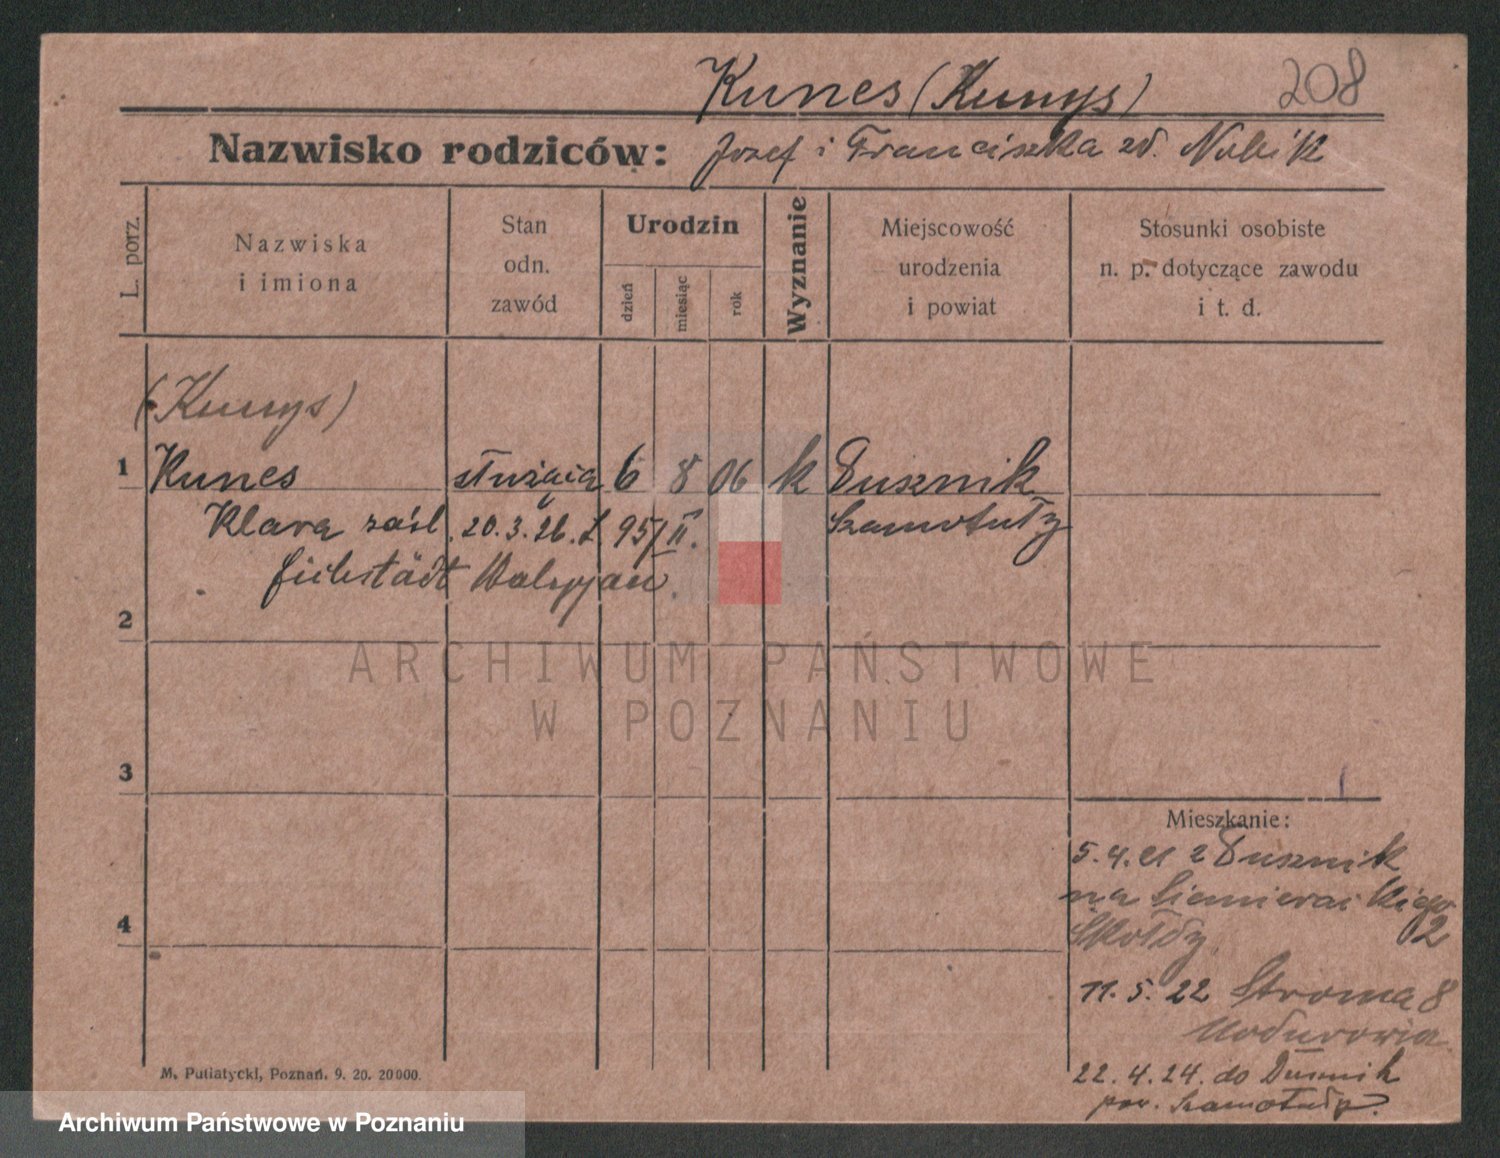 Kunes (Kunys) 208
Nazwisko rodziców: Jozef i Franciszka zd. Nobik
L. porz.
Nazwiska
i imiona
Stan
odn.
zawód
Urodzin
dzień
miesiąc
rok
Wyznanie
Miejscowość
urodzenia
i powiat
Stosunki osobiste
n. p. dotyczące zawodu
i t. d.
(Kunys)
1 Kunes służąca 6 8 06 k Dusznik
Klara zaśl. 20.3.26. 95/II. Szamotuły
2
ARCHIWUM PAŃSTWOWE
W POZNANIU
3
Mieszkanie:
5.4.21 z Dusznik
na
2
4
11.5.22 Stroma 8
22.4.24. do Dusznik
pow. Szamotuły.
M. Putiatycki, Poznań. 9. 20. 20000.
Archiwum Państwowe w Poznaniu